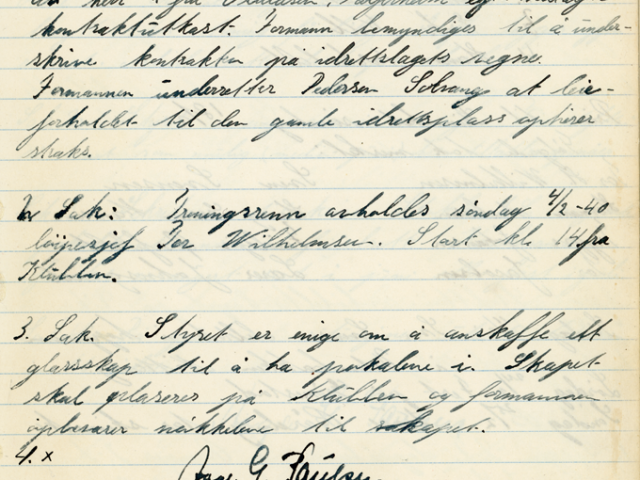 kontraktutkast. Formann bemyndiges til å under-
skrive kontrakten på idrettslagets vegne.
Formannen underretter Pedersen Solvang at leie-
forholdet til den gamle idrettsplass ophører
straks.
2. Sak: Treningsrenn avholdes søndag 4/2-40
løipesjef Per Wilhelmsen. Start kl. 14 fra
Klubben.
3. Sak. Styret er enige om å anskaffe ett
glasskap til å ha pokalene i. Skapet
skal plaseres på Klubben og formannen
opbevarer nøkkelene til skapet.
4. x
G. Paulsen